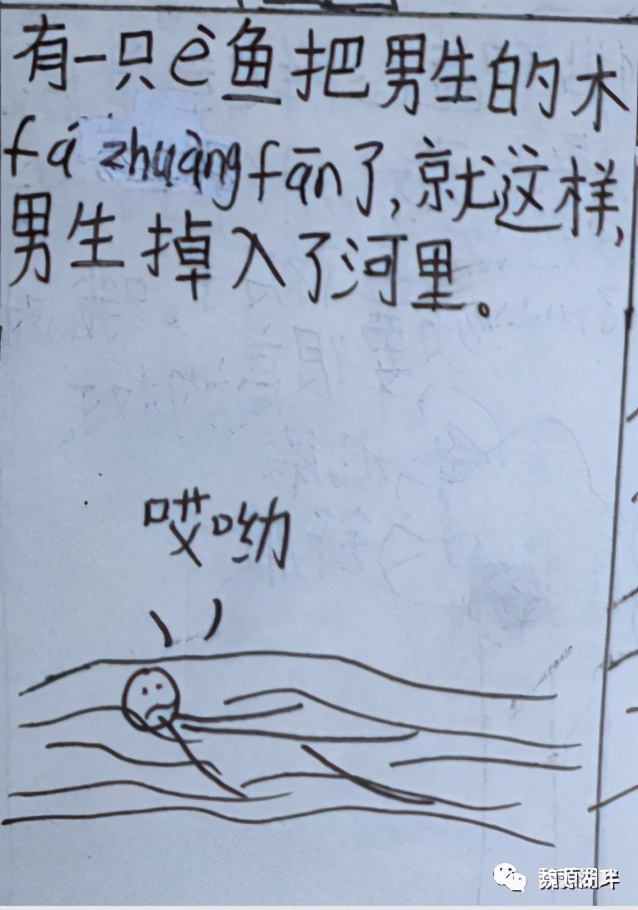 有一只è鱼把男生的木
fá zhuàng fān了,就这样,
男生掉入了河里。
哎呦
魏源湖畔